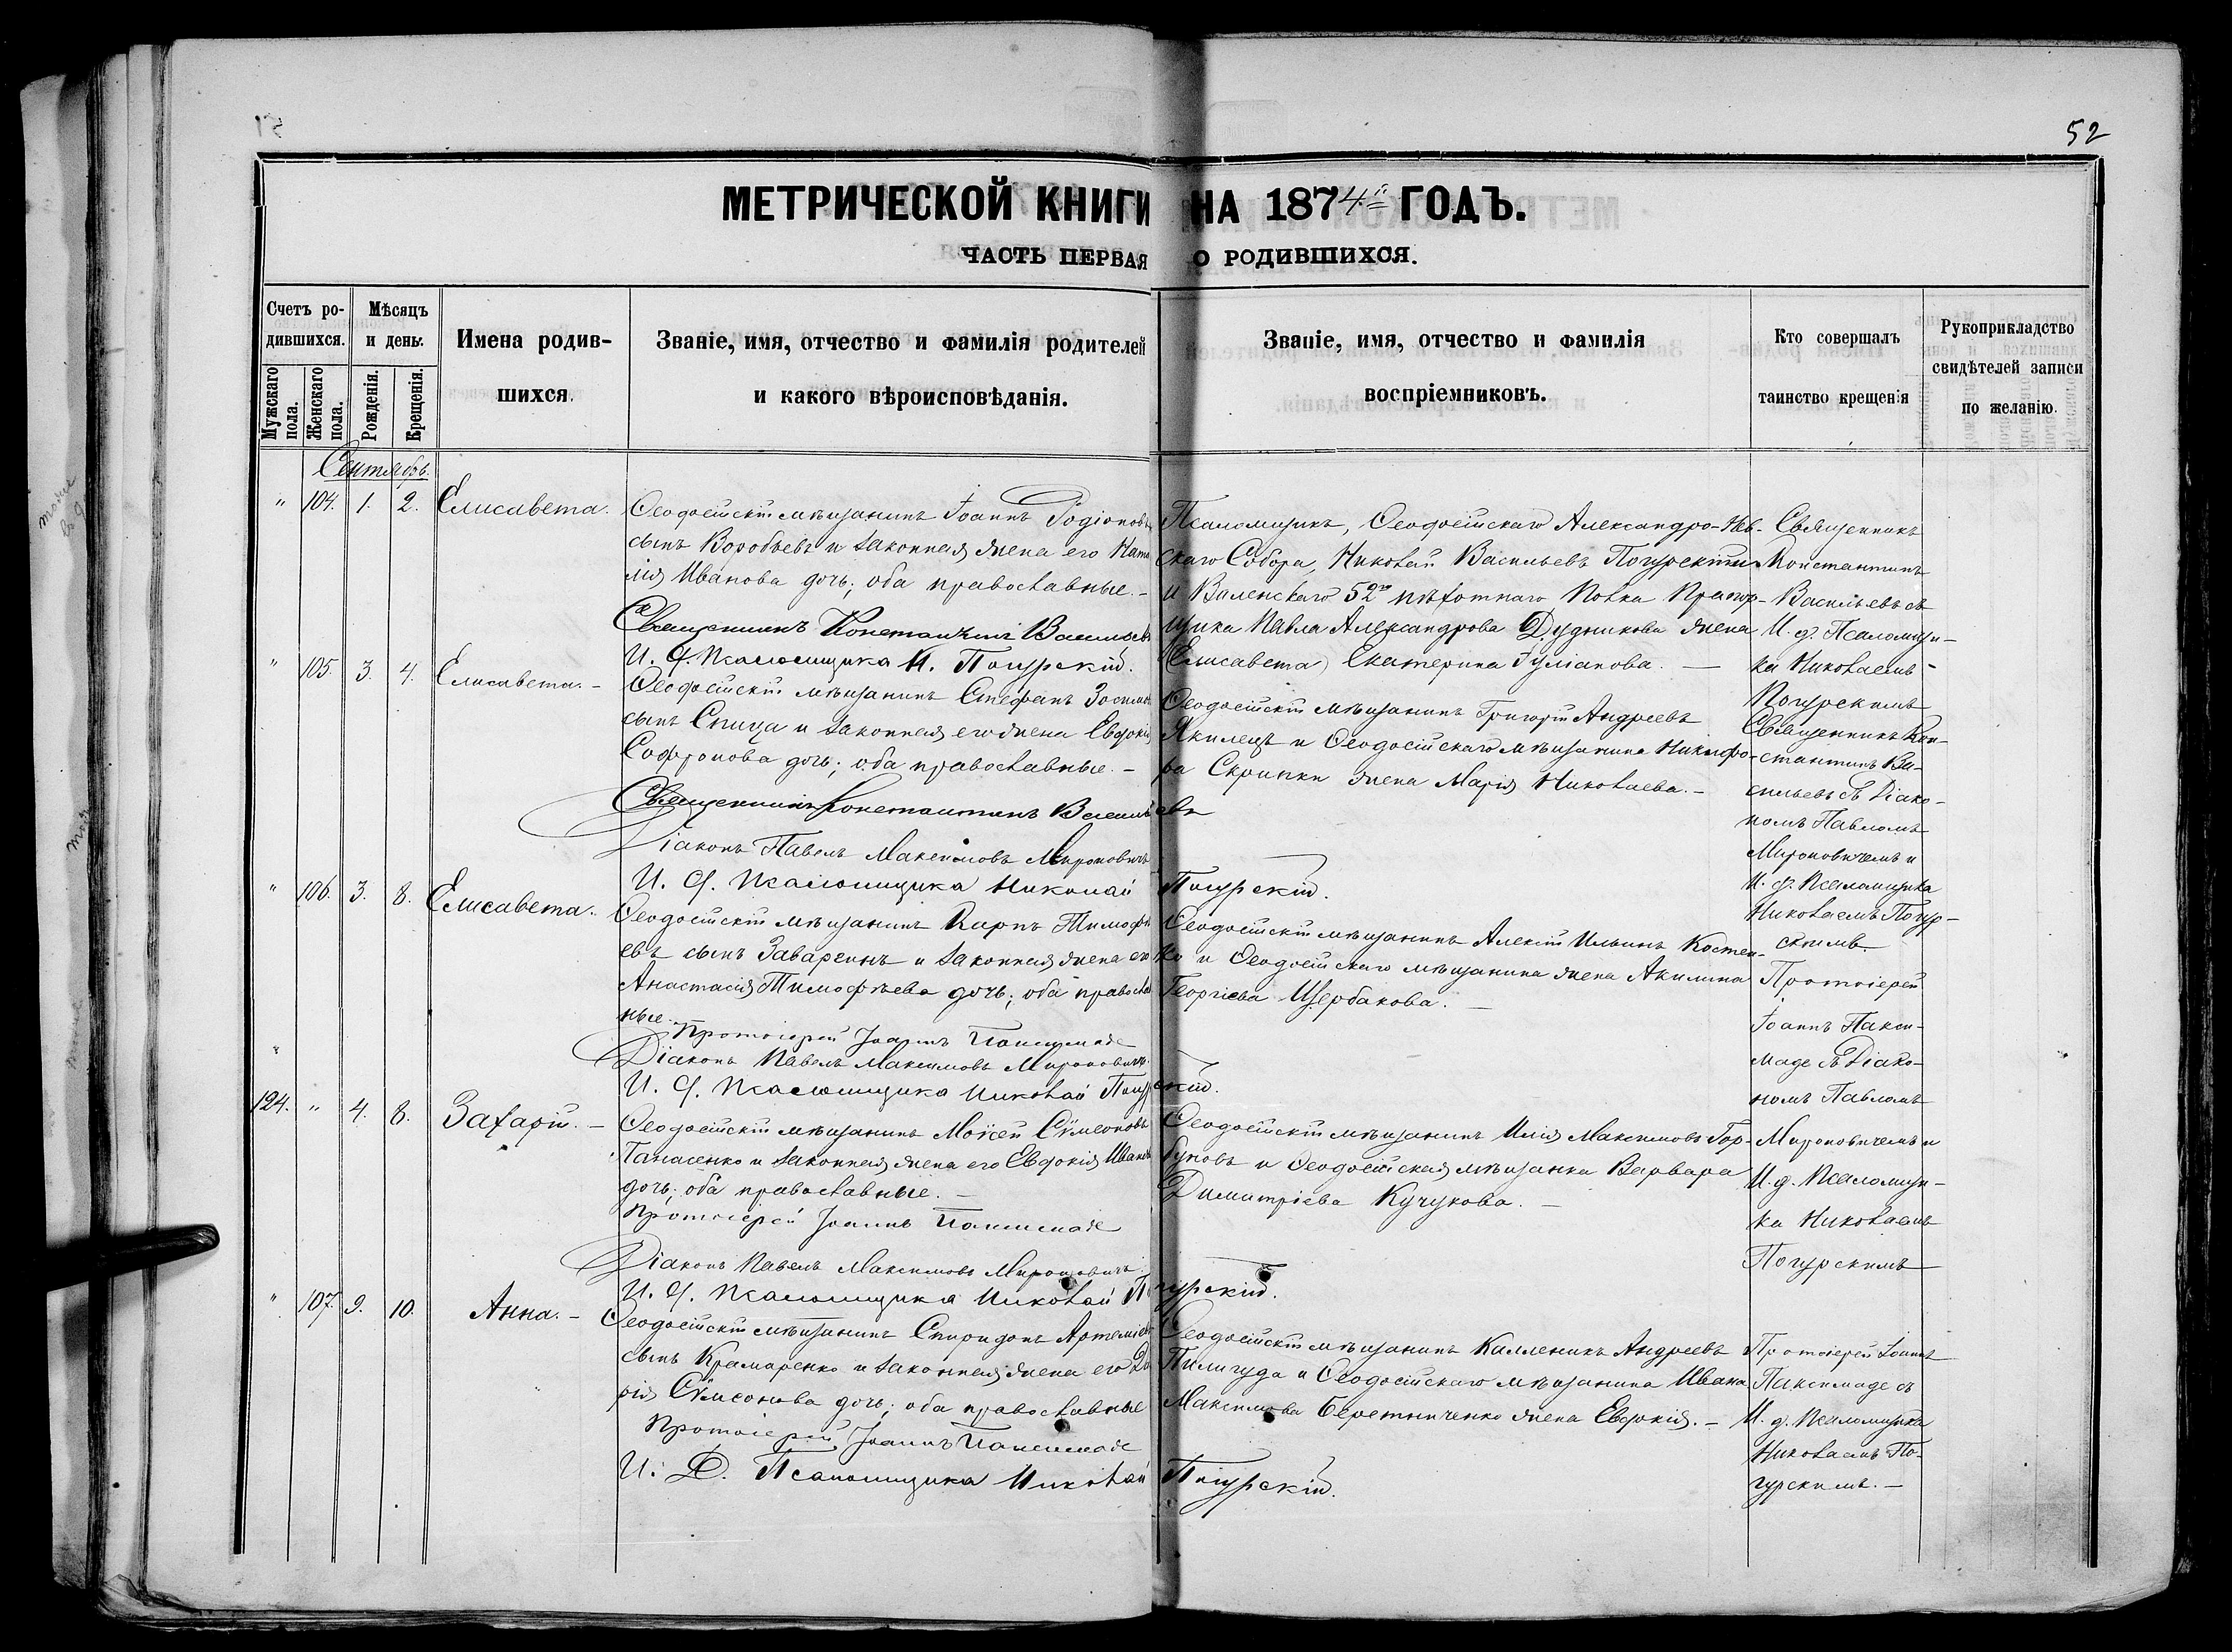 52
МЕТРИЧЕСКОЙ КНИГИ НА 1874й ГОДЪ.
ЧАСТЬ ПЕРВАЯ О РОДИВШИХСЯ.
Счетъ родившихся.
Мужскаго пола.
Женскаго пола.
Мѣсяцъ и день.
Рожденія.
Крещенія.
Имена родившихся.
Званіе, имя, отчество и фамилія родителей
и какого вѣроисповѣданія.
Званіе, имя, отчество и фамилія
воспріемниковъ.
Кто совершалъ
таинство крещенія
Рукоприкладство
свидѣтелей записи
по желанію.
Сентябрь.
" 104. 1. 2. Елисавета.
Ѳеодосійскій мѣщанинъ Іоаннъ Родіоновъ
сынъ Воробьевъ и законная жена его Ната
лія Иванова дочь; оба православные. –
Священникъ Константинъ Васильевъ
И. Д. Псаломщика Н. Погурскій.
Псаломщикъ, Ѳеодосійскаго Александро-Нев-
скаго Собора, Николай Васильевъ Погурскій
и Виленскаго 52го пѣхотнаго Полка Прапор-
щика Павла Александрова Дудникова жена
(Елисавета) Екатерина Іуліанова. —
Священникъ
Константинъ
Васильевъ съ
И. д. Псаломщи-
ка Николаемъ
Погурскимъ
" 105. 3. 4. Елисавета. –
Ѳеодосійскій мѣщанинъ Стефанъ Зосимов
сынъ Спица и законная его жена Евдокія
Софронова дочь; оба православные. –
Священникъ Константинъ Васильевъ
Діаконъ Павелъ Максимовъ Мироновичъ
И. Д. Псаломщика Николай Погурскій.
Ѳеодосійскій мѣщанинъ Григорій Андреевъ
Якилецъ и Ѳеодосійскаго мѣщанина Никифо-
ра Скрипки жена Марія Николаева. –
Священникъ Кон-
стантинъ Ва-
сильевъ съ Діако-
номъ Павломъ
Мироновичемъ и
И. д. Псаломщика
Николаемъ Погур-
скимъ
" 106. 3. 8. Елисавета.
Ѳеодосійскій мѣщанинъ Карпъ Тимофе
евъ сынъ Заваргинъ и законная жена его
Анастасія Тимофѣева дочь; оба православ
ные.
Протоіерей Іоаннъ Паксимаде
Діаконъ Павелъ Максимовъ Мироновичъ.
И. Д. Псаломщика Николай Погурскій.
Ѳеодосійскій мѣщанинъ Алексій Ильинъ Костен-
ко и Ѳеодосійскаго мѣщанина жена Акилина
Георгіева Щербакова. —
Протоіерей
Іоаннъ Пакси-
маде съ Діако-
номъ Павломъ
Мироновичемъ и
И. д. Псаломщи-
ка Николаемъ
Погурскимъ
124. " 4. 8. Захарій. –
Ѳеодосійскій мѣщанинъ Моѵсей Сѵмеоновъ
Панасенко и законная жена его Евдокія Иванов
дочь; оба православные. –
Протоіерей Іоаннъ Паксимаде
Діаконъ Павелъ Максимовъ Мироновичъ.
И. Д. Псаломщика Николай Погурскій.
Ѳеодосійскій мѣщанинъ Илія Максимовъ Гор-
буновъ и Ѳеодосійская мѣщанка Варвара
Димитріева Кучукова. –
" 107. 9. 10. Анна. –
Ѳеодосійскій мѣщанинъ Спиридонъ Артеміевъ
сынъ Крамаренко и законная жена его Да
рія Сѵмеонова дочь; оба православные
Протоіерей Іоаннъ Паксимаде
И. Д. Псаломщика Николай Погурскій.
Ѳеодосійскій мѣщанинъ Калленикъ Андреевъ
Пилигуда и Ѳеодосійскаго мѣщанина Ивана
Максимова Беретниченко жена Евдокія. –
Протоіерей Іоаннъ
Паксимаде съ
И. д. Псаломщика
Николаемъ По-
гурскимъ. –